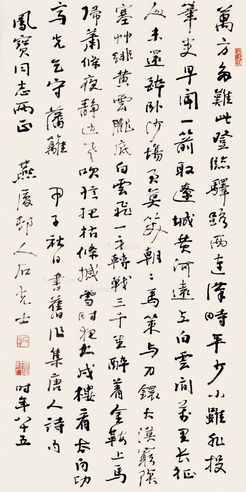 萬方多難此登臨驛路西連漢時平少小雖非投
筆吏早聞一箭取遼城黃河遠上白雲間萬里長征
人未還醉臥沙場君莫笑朝朝馬策與刀鐶大漠窮
塞草緋黃雲隴底白雲飛一身轉戰三千里醉著金鞍上馬
歸蕭條夜靜邊風吹倚把枯條撼雪時戍樓看太白功
高先乞守藩籬 甲子秋日書舊作集唐人詩句
鳳寶同志兩正 燕邨人石 時年八十五